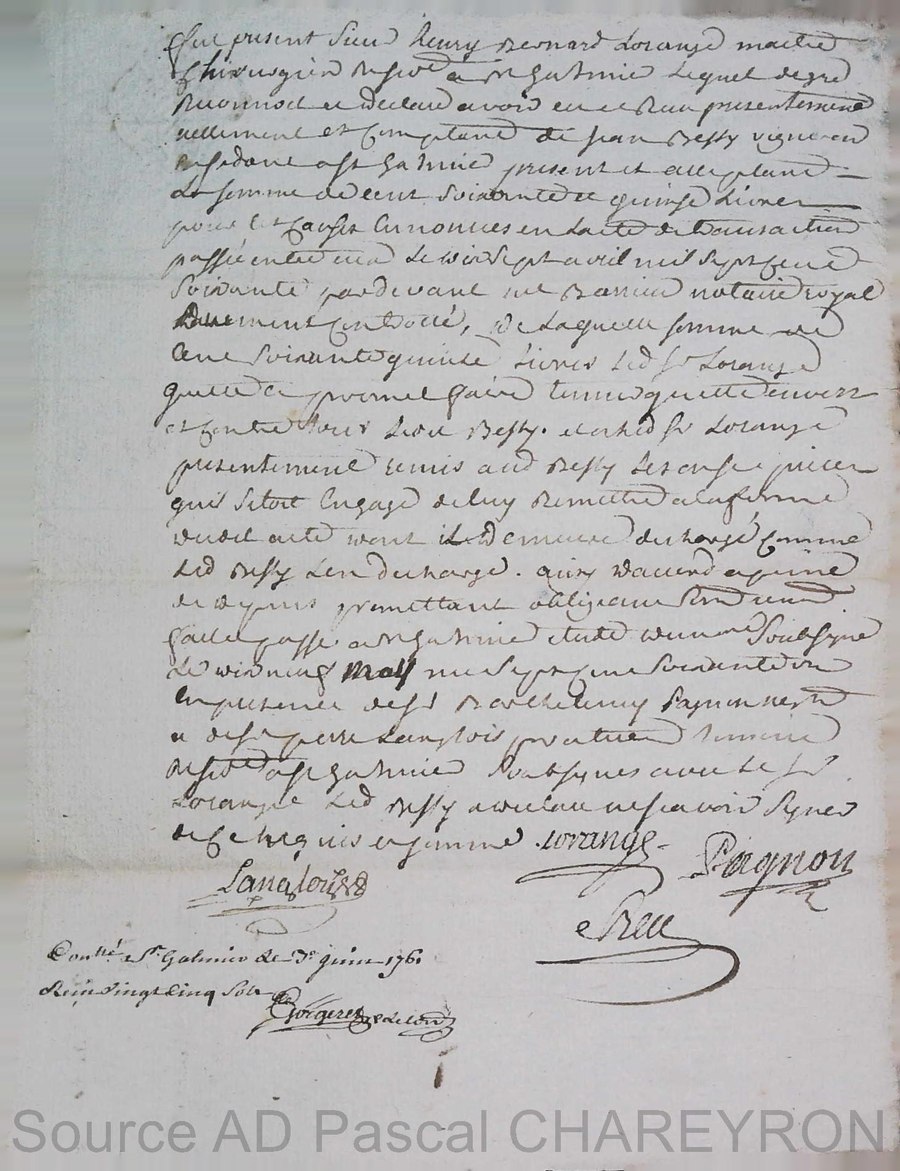 Fut present Sieur Henry Bernard Lorange maitre
Chirurgien Resid^t a St Galmier Lequel de gré
Reconnoit et declare avoir eu et Reçu presentement
reellement et Comptant de Jean Bessy vigneron
residant a St Galmie present et acceptant
La somme de cent Soixante et quinze Livres
pour les Causes Enoncées en Lacte de transaction
passé entre eux Le dix Sept avril mil Sept Cent
Soixante pardevant notaire royal
duement Controllé, de Laquelle somme de
Cent Soixante quinze Livres Led Sr Lorange
quitte et promet faire tenir quitte envers
et Contre tous Led Bessy. et a led Sr Lorange
presentement remis aud Bessy Les pieces
quil Setoit Engagé de luy Remettre a la forme
dudit acte dont il demeure dechargé Comme
Led Bessy Len decharge. ainsy daccord a peine
de depens promettant obligeant renonceant
fait et passé a St Galmie etude du no^re Soubsigné
Le dix neuf may mil Sept Cent Soixante un
En presence de Sr Barthelemy Pagnon
et de Sr pierre Langlois praticien temoins
Resid^t a St Galmie Soubsignes avec Le d Sr
Lorange Led Bessy a declaré ne scavoir Signer
de Ce Enquis et Sommé. Lorange
Pagnon
Langlois
Cont^llé a St. Galmier le 3e juin 1761
Reçu vingt Cinq Sols
Source AD Pascal CHAREYRON